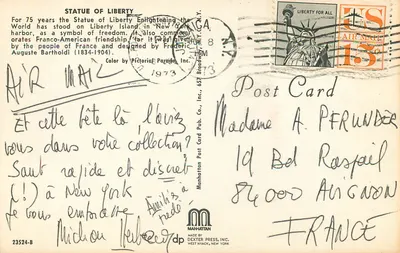 STATUE OF LIBERTY
For 75 years the Statue of Liberty Enlightening the
World has stood on Liberty Island in New York
harbor, as a symbol of freedom. It also
orates Franco-American friendship, for it was
by the people of France and designed by Frederic
Auguste Bartholdi (1834-1904).
Color by Pictorial Parade, Inc.
AIR MAIL
Et cette bête là, l'avez
vous dans votre collection?
Saut rapide et discret
(!) à New York
je vous embrasse
23524-B
Manhattan Post Card Pub. Co., Inc., 657 Broadway, N.Y.
MANHATTAN
MADE BY
DEXTER PRESS, INC.
WEST NYACK, NEW YORK
dp
8
PM
1973
N.Y.
LIBERTY FOR ALL
US
AIR MAIL
13
Post Card
Madame A. PERUNDER
19 Bd Raspail
84000 AVIGNON
FRANCE